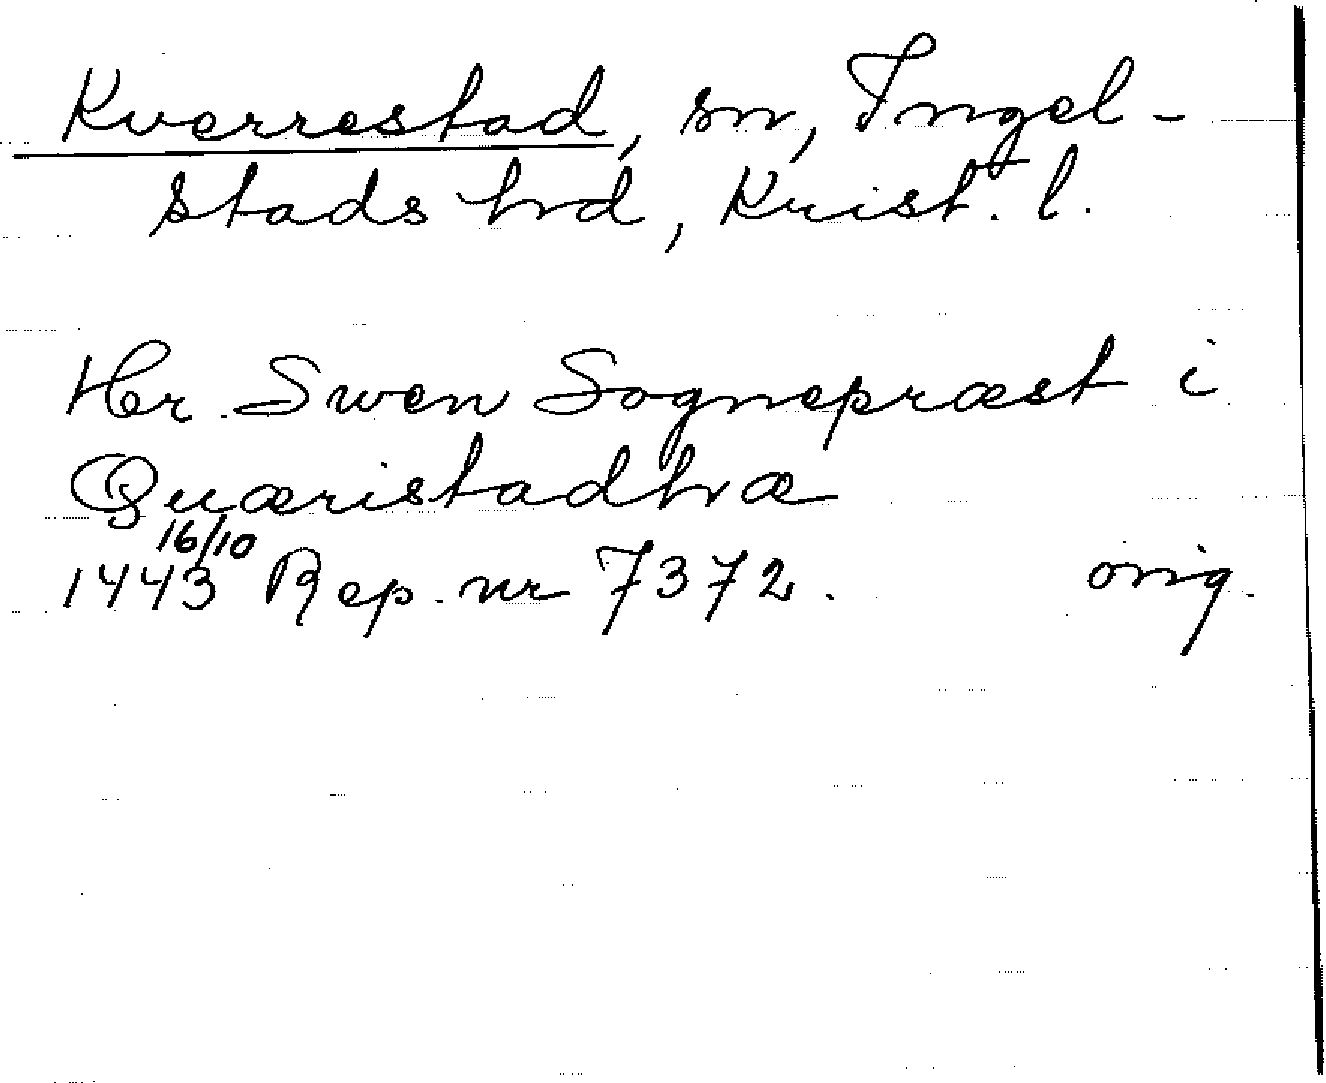 Kverrestad, sn, Ingel-
stads hrd, Krist. l.
Her. Swen Sognepræst i
Quæristadhræ
16/10
1443 Rep. nr 7372. orig.